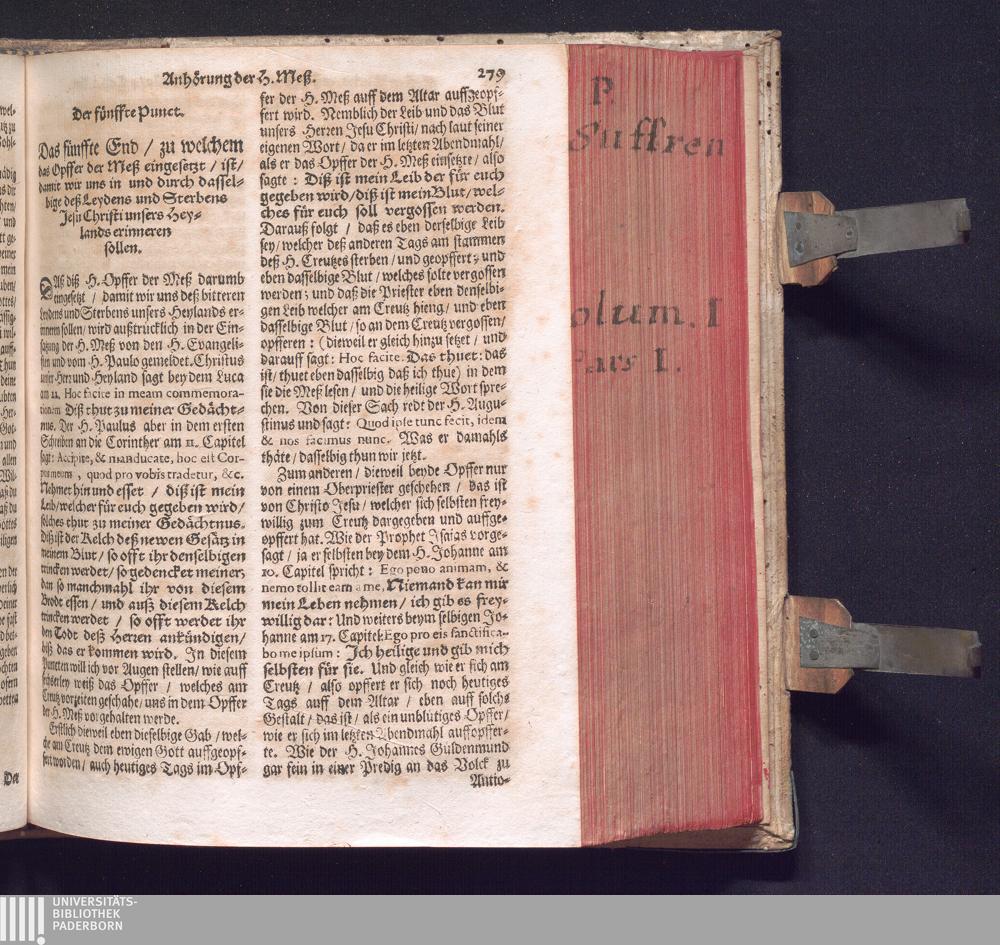 Anhörung der H. Meß. 279
Der fünffte Punct.
Das fünffte End / zu welchem
das Opffer der Meß eingesetzt / ist /
damit wir uns in und durch dassel-
bige deß Leydens und Sterbens
Jesu Christi unsers Hey-
lands erinneren
sollen.
DAß diß H. Opffer der Meß darumb
eingesetzt / damit wir uns deß bitteren
Leydens und Sterbens unsers Heylands er-
innern sollen / wird außtrücklich in der Ein-
satzung der H. Meß von den H. Evangeli-
sten und vom H. Paulo gemeldet. Christus
unser Herr und Heyland sagt bey dem Luca
am 22. Hoc facite in meam commemora-
tionem Diß thut zu meiner Gedächt-
nus. Der H. Paulus aber in dem ersten
Schreiben an die Corinther am 11. Capitel
sagt: Accipite, & manducate, hoc est Cor-
pus meum, quod pro vobis tradetur, &c.
Nehmet hin und esset / diß ist mein
Leib / welcher für euch gegeben wird /
solches thut zu meiner Gedächtnus.
Diß ist der Kelch deß newen Gesätz in
meinem Blut / so offt ihr denselbigen
trincken werdet / so gedencket meiner;
dan so manchmahl ihr von diesem
Brodt essen / und auß diesem Kelch
trincken werdet / so offt werdet ihr
den Todt deß Herren ankündigen /
biß das er kommen wird. In diesem
Puncten will ich vor Augen stellen / wie auff
sechserley weiß das Opffer / welches am
Creutz vorzeiten geschahe / uns in dem Opffer
der H. Meß vorgehalten werde.
Erstlich dieweil eben dieselbige Gab / wel-
che am Creutz dem ewigen Gott auffgeopf-
fert worden / auch heutiges Tags im Opf-
fer der H. Meß auff dem Altar auffgeopf-
fert wird. Nemblich der Leib und das Blut
unsers Herren Jesu Christi / nach laut seiner
eigenen Wort / da er im letzten Abendmahl /
als er das Opffer der H. Meß einsetzte / also
sagte: Diß ist mein Leib der für euch
gegeben wird / diß ist mein Blut / wel-
ches für euch soll vergossen werden.
Darauß folgt / daß es eben derselbige Leib
sey / welcher deß anderen Tags am stammen
deß H. Creutzes sterben / und geopffert; und
eben dasselbige Blut / welches solte vergossen
werden; und daß die Priester eben denselbi-
gen Leib welcher am Creutz hieng / und eben
dasselbige Blut / so an dem Creutz vergossen /
opfferen: (dieweil er gleich hinzu setzet / und
darauff sagt: Hoc facite. Das thuet: das
ist / thuet eben dasselbig daß ich thue) in dem
sie die Meß lesen / und die heilige Wort spre-
chen. Von dieser Sach redt der H. Augu-
stinus und sagt: Quod ipse tunc fecit, idem
& nos facimus nunc. Was er damahls
thäte / dasselbig thun wir jetzt.
Zum anderen / dieweil beyde Opffer nur
von einem Oberpriester geschehen / das ist
von Christo Jesu / welcher sich selbsten frey-
willig zum Creutz dargegeben und auffge-
opffert hat. Wie der Prophet Isaias vorge-
sagt / ja er selbsten bey dem H. Johanne am
10. Capitel spricht: Ego pono animam, &
nemo tollit eam a me, Niemand kan mir
mein Leben nehmen / ich gib es frey-
willig dar: Und weiters beym selbigen Jo-
hanne am 17. Capitel: Ego pro eis sanctifica-
bo me ipsum: Ich heilige und gib mich
selbsten für sie. Und gleich wie er sich am
Creutz / also opffert er sich noch heutiges
Tags auff dem Altar / eben auff solche
Gestalt / das ist / als ein unblutiges Opffer /
wie er sich im letzten Abendmahl auffopffer-
te. Wie der H. Johannes Guldenmund
gar fein in einer Predig an das Volck zu
Antio-
P.
Suffren
olum. I
Pars I.
UNIVERSITÄTS-
BIBLIOTHEK
PADERBORN